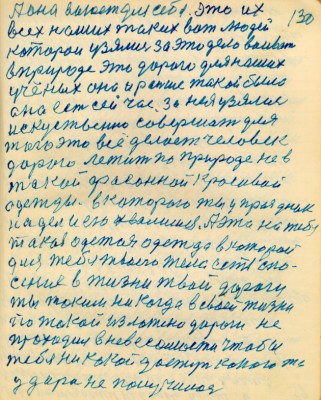 А она вьюет для себя. Это их 130
всех наших таких вот людей
которои узялися за это дело воевать
в природе это дорого для наших
учёных она и раньше такой была
она есть сей час. за неё узялися
искуственно совершать для
того это всё делает человек
дорого летит по природе не в
такой фасонной красивой
одежды. в которого ты у празднык
надел и ею хвалишся. А это на тебу
такая одетая одежда в которой
для тебя твоего тела есть спо-
сение в жизни твоей дороги
ты таким никогда в своей жизни
по такой изложено дороги не
проходил в невесомости чтобы
тебя никакой доступ какого то
удара не получилося